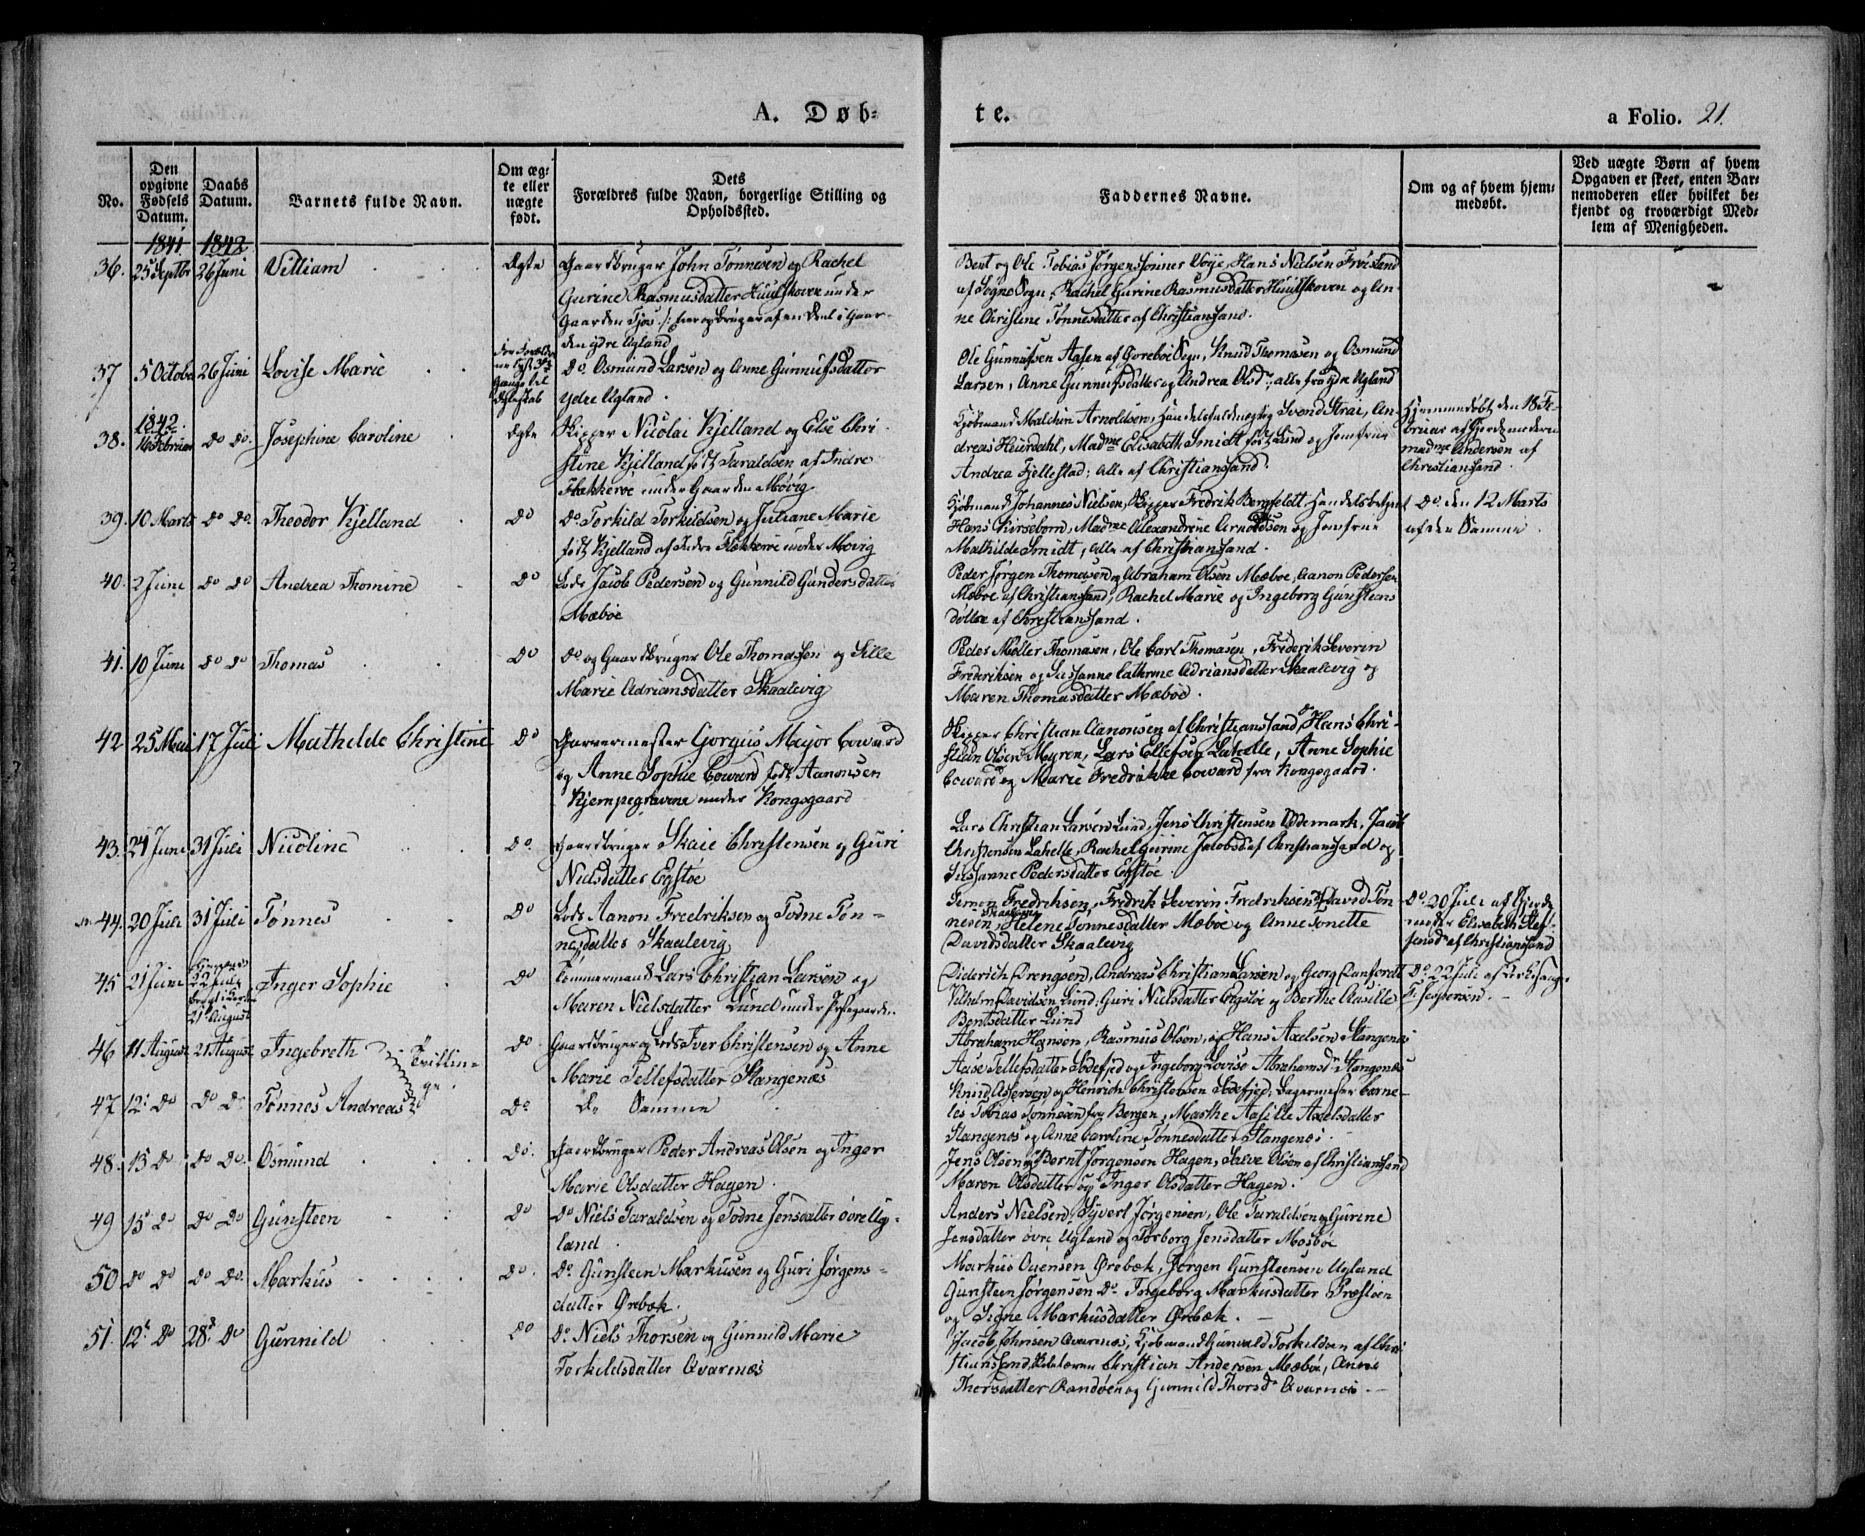 A. Døb-
te.
a Folio. 21.
No.
Den opgivne Fødsels Datum.
Daabs Datum.
Barnets fulde Navn.
Om ægte eller uægte født.
Dets Forældres fulde Navn, borgerlige Stilling og Opholdssted.
Faddernes Navne.
Om og af hvem hjemmedøbt.
Ved uægte Børn af hvem Opgaven er skeet, enten Barnemoderen eller hvilket bekjendt og troværdigt Medlem af Menigheden.
1841 1842
36. 25 Septbr 26 Juni Villiam Ægte Gaardbruger John Tønnesen og Rachel
Gurine Rasmusdatter Huulskoven under
Gaarden Tjos
den ydre Ugland
Bent og Ole Tobias Jørgensønner Voije, Hans Nielsen Frøisland
af Søgne Sogn, Rachel Gurine Rasmusdatter Huulskoven og An-
ne Christine Tønnesdatter af Christiansand.
37 5 Octobr 26 Juni Lovise Marie
Do. Osmund Larsen og Anne Gunnufsdatter
ydre Ugland.
Ole Gunnufsen Aasen af Sogn, Knud Thomasen og Osmund
Larsen, Anne Gunnufsdatter og Andrea Olsd: alle fra ydre Ugland
1842.
38. 16 Februar Do Do. Josephine Caroline Ægte Skipper Nicolai Kjelland og Else Chri-
stine Kjelland født Taraldsen af Indre
Flekkerøe under Gaarden Møvig
Kjøbmand Malthin Arnoldsen, Handelsfuldmægtig Svend Strai, An-
dreas Heierdahl, Madme Elisabeth Smidt født Lund og Jomfrue
Andrea Fjellestad: Alle af Christiansand.
Hjemmedøbt den 18 Fe-
bruar af Gjordemoderen
madme Andersen af
Christiansand.
39. 10 Marts Do Do. Theodor Kjelland Do Do Torkild Torkildsen og Juliane Marie
født Kjelland af Indre Flekkerøe under Møvig
Kjøbmand Johannes Nielsen, Skipper Fredrik Bergfeldt Handelsbetjent
Hans Kirsebom, Madme Alexandrine Arnoldsen og Jomfrue
Mathilde Smidt, Alle af Christiansand.
Do. den 12 Marts
af den Samme.
40. 2 Juni Do Do Andrea Thomine Do Lods Jacob Pedersen og Gunnild Gundersdatter
Mæbøe
Peder Jørgen Thomasen og Abraham Olsen Mæbøe, Aanon Pedersen
Mæbøe af Christiansand, Rachel Marie og Ingeborg Gunstens
døttre af Christiansand.
41. 10 Juni Do Do Thomas Do Do og Gaardbruger Ole Thomassen og Sille
Marie Adriansdatter Skaalevig
Peder Møller Thomasen, Ole Carl Thomasen, Frederik Severin
Frederiksen og Susanne Cathrine Adriansdatter Skaalevig og
Maren Thomasdatter Mæbøe.
42 25 Mai 17 Juli Mathilde Christine Do Garvermester Gorgius Mejor Coward
og Anne Sophie Coward født Aanonsen
Kjempegravene under Kongsgaard
Skipper Christian Aanonsen af Christiansand, Hans Chri-
stian Olsen Myren, Lars Ellefsen Lahelle, Anne Sophie
Coward og Marie Fredrikke Coward fra Kongsgaard.
43. 24 Juni 31 Juli Nicoline Do. Gaardbruger Skaie Christensen og Guri
Nielsdatter Egstøe
Lars Christian Larsen Lund, Jens Christensen Ødemark, Jacob
Christensen Lahelle, Rachel Gurine Jacobsd af Christiansand og
Susanne Pedersdatter Egstøe.
44. 20 Juli 31 Juli Tønnes Do Lods Aanon Fredriksen og Todne Tøn-
nesdatter Skaalevig
Fredriksen, Fredrik Severin Fredriksen David Tøn-
nesen, Helene Tønnesdatter Mæbøe og Anne Tonette
Davidsdatter Skaalevig
Do. 20 Juli af Gjorde-
moder Elisabeth
af Christiansand
45 21 Juni
21 August Inger Sophie Do Tømmermand Lars Christian Larsen og
Maren Nielsdatter Lund under
Diderich Drengsen, Andreas Christian Larsen og Georg Danfordt
Vilhelm Davidsen Lund, Guri Nielsdatter Egstøe og Berthe Aasille
Bentsdatter Lund
Do. 22 Juli af Kirkesanger
F. Jespersen.
46 11 August 21 August Ingebreth Tvillin-
ge. Do. Gaardbruger og Lods Iver Christensen og Anne
Marie Tellefsdatter Stangenæs
Abraham Hansen, Rasmus Olsen, og Hans Axelsen Stangenæs
Aase Tellefsdatter Sodefjed og Ingeborg Lovise Abrahamsdr Stangenæs
47 12. Do Do Do. Tønnes Andreas Do Do Samme
Knud Assersen og Henrich Christensen Sodefjed, Bagermester Corne-
les Tobias Tønnesen fra Bergen, Marthe Aasille Axelsdatter
Stangenæs og Anne Caroline Tønnesdatter Stangenæs.
48. 13 Do Do Do. Osmund Do. Gaardbruger Peder Andreas Olsen og Inger
Marie Olsdatter Hagen.
Jens Olsen og Bernt Jørgensen Hagen, Salve Olsen af Christiansand
Maren Olsdatter og Inger Olsdatter Hagen.
49 15 Do Do Do Gunsteen Do Do Niels Taraldsen og Todne Jensdatter øvre Ug-
land.
Anders Nielsen, Syvert Jørgensen, Ole Taraldsen og Gurine
Jensdatter øvre Ugland og Torborg Jensdatter Mosbøe
50 Do Do Do Do. Markus Do. Do Gunsteen Markusen og Guri Jørgens-
datter Ørebæk.
Markus Ouensen Ørebæk, Jørgen Gunsteensen Ugland
Gunsteen Jørgensen Do. Ingeborg Markusdatter Præstøen
og Signe Markusdatter Ørebæk.
51. 12 Do 28 Do Gunnild Do Do Niels Thorsen og Gunnild Marie
Torkildsdatter Qvarnæs
Jacob Johnsen Qvarnæs, Kjøbmand Gunvald Torkildsen af Chri-
stiansand, Christian Andersen Mæbøe, Anne
Thorsdatter Randøen og Gunnild Thorsdr Qvarnæs.